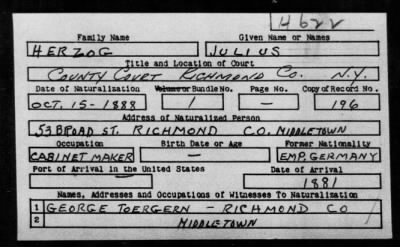 H622
Family Name Given Name or Names
HERZOG JULIUS
Title and Location of Court
COUNTY COURT RICHMOND Co. N.Y.
Date of Naturalization Volume or Bundle No. Page No. Copy of Record No.
OCT. 15-1888 1 — 196
Address of Naturalized Person
53 BROAD ST. RICHMOND CO. MIDDLETOWN
Occupation Birth Date or Age Former Nationality
CABINET MAKER — EMP. GERMANY
Port of Arrival in the United States Date of Arrival
1881
Names, Addresses and Occupations of Witnesses To Naturalization
1 GEORGE TOERGERN - RICHMOND CO
2 MIDDLETOWN